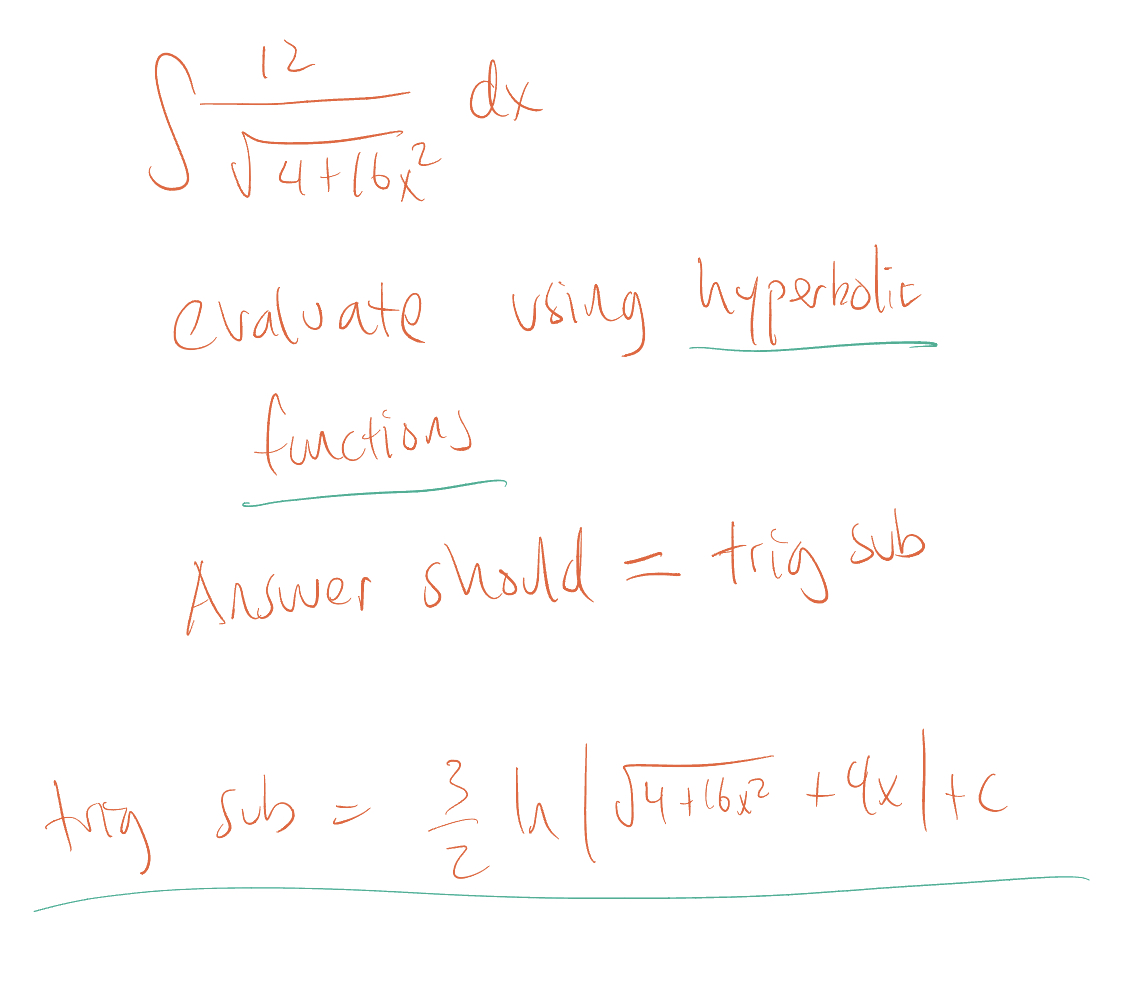 ∫ 12/√(4+16x²) dx
evaluate using hyperbolic
functions
Answer should = trig sub
trig sub = 3/2 ln|√(4+16x²) + 4x| + c